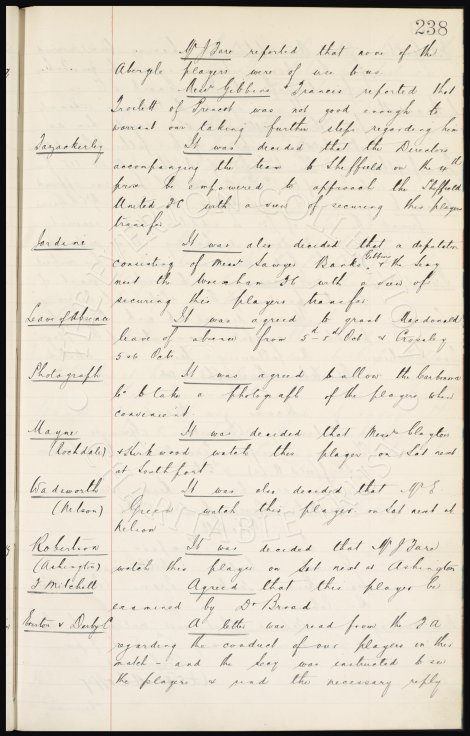 238
Mr J Fare reported that none of the
Abergele players were of use to us
Messrs Gibbins & Francis reported that
Trouett of Prescot was not good enough to
warrant our taking further steps regarding him
Tazackerley It was decided that the Directors
accompanying the team to Sheffield on the
prox be empowered to approach the Sheffield
United FC with a view of securing this players
transfer
Jordine It was also decided that a deputation
consisting of Messrs Sawyer Banks Gibbins & the Secy
meet the Wrexham FC with a view of
securing this players transfer
Leave of Absence It was agreed to grant Macdonald
leave of absence from Oct & Crossley
5 & 6 Oct
Photograph It was agreed to allow the
Co to take a photograph of the players when
convenient
Mayne It was decided that Messrs Clayton
(Rochdale) & Kirkwood watch this player on Sat next
at Southport
Wadsworth It was also decided that Mr E
(Nelson) Green watch this player on Sat next at
Nelson
Robertson It was decided that Mr J Fare
(Ashington) watch this player on Sat next at Ashington
F Mitchell Agreed that this player be
examined by Dr Broad
Everton v Derby C A letter was read from the F A
regarding the conduct of our players in this
match - and the Secy was instructed to see
the players & send the necessary reply